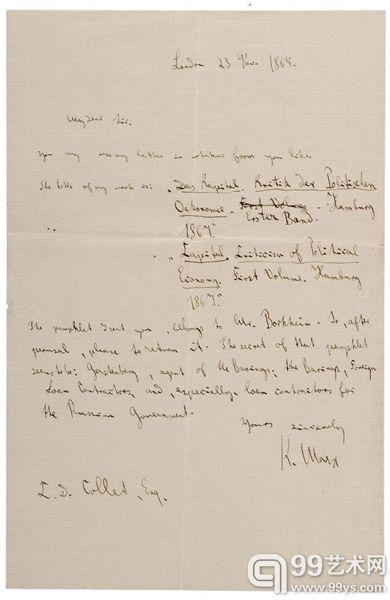 London 23 Nov. 1868.
My dear Sir.
You may use my letter in whatever form you like.
The title of my work is: „Das Kapital. Kritik der Politischen
Oekonomie. First Volume. Hamburg
Erster Band.
1867."
„Capital. Criticism of Political
Economy. First Volume. Hamburg
1867."
The pamphlet I sent you, belongs to Mr. Borkheim. So, after
perusal, please to return it. The secret of that pamphlet
seems to be: Gerstenberg, agent of the Barings; the Barings, Foreign
Loan Contractors, and, especially, loan contractors for
the Russian Government.
Yours sincerely
K. Marx
C. D. Collet, Esq.
99艺术网
www.99ys.com